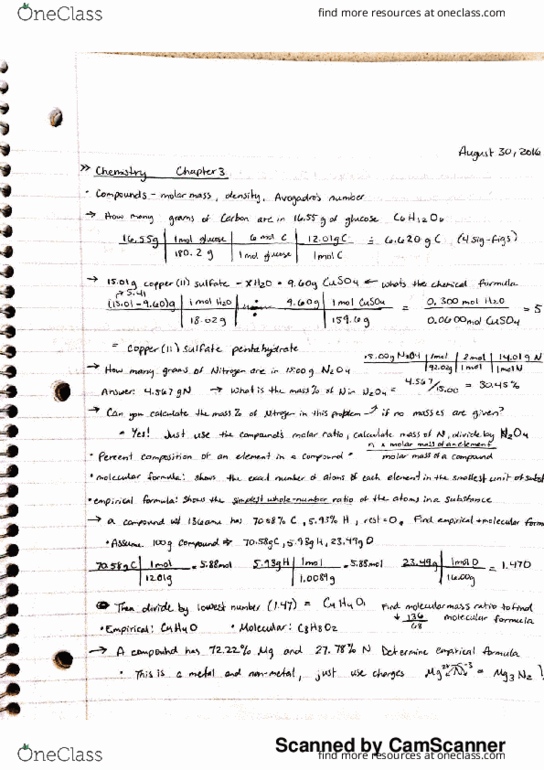 OneClass
find more resources at oneclass.com
August 30, 2016
>> Chemistry Chapter 3
• Compounds - molar mass, density, Avogadro's number
→ How many grams of Carbon are in 16.55 g of glucose C6H12O6
16.55g | 1mol glucose | 6 mol C | 12.01gC = 6.620 g C (4 sig-figs)
180.2 g | 1mol glucose | 1molC
→ 15.01g copper(II) sulfate - XH2O = 9.60g CuSO4 ← whats the chemical formula
→ 5.41
(15.01 - 9.60)g | 1 mol H2O ÷ 9.60g | 1mol CuSO4 = 0.300 mol H2O = 5
18.02g 159.6g 0.0600mol CuSO4
= copper(II) sulfate pentahydrate
15.00g N2O4 | 1mol | 2mol | 14.01g N
92.02g | 1mol | 1molN
→ How many grams of Nitrogen are in 15.00g N2O4
Answer: 4.567 gN → What is the mass % of N in N2O4 = 4.567/15.00 = 30.45%
→ Can you calculate the mass % of Nitrogen in this problem if no masses are given?
• Yes! Just use the compound's molar ratio, calculate mass of N, divide by N2O4
• Percent composition of an element in a compound = n x molar mass of an element
molar mass of a compound
• molecular formula: shows the exact number of atoms of each element in the smallest unit of subst
• empirical formula: shows the simplest whole-number ratio of the atoms in a substance
→ a compound w/ 136amu has 70.58% C, 5.93% H, rest = O. Find empirical + molecular form
• Assume 100g compound → 70.58gC, 5.93gH, 23.49g O
70.58gC | 1mol = 5.88mol 5.93gH | 1mol = 5.88mol 23.49g | 1molO = 1.470
12.01g 1.0089g 16.00g
Then divide by lowest number (1.47) = C4H4O1 Find molecular mass ratio to find
↓ 136 molecular formula
68
• Empirical: C4H4O • Molecular: C8H8O2
→ A compound has 72.22% Mg and 27.78% N Determine empirical formula
• This is a metal and non-metal, just use charges Mg2+ N-3 = Mg3N2
Scanned by CamScanner
OneClass
find more resources at oneclass.com